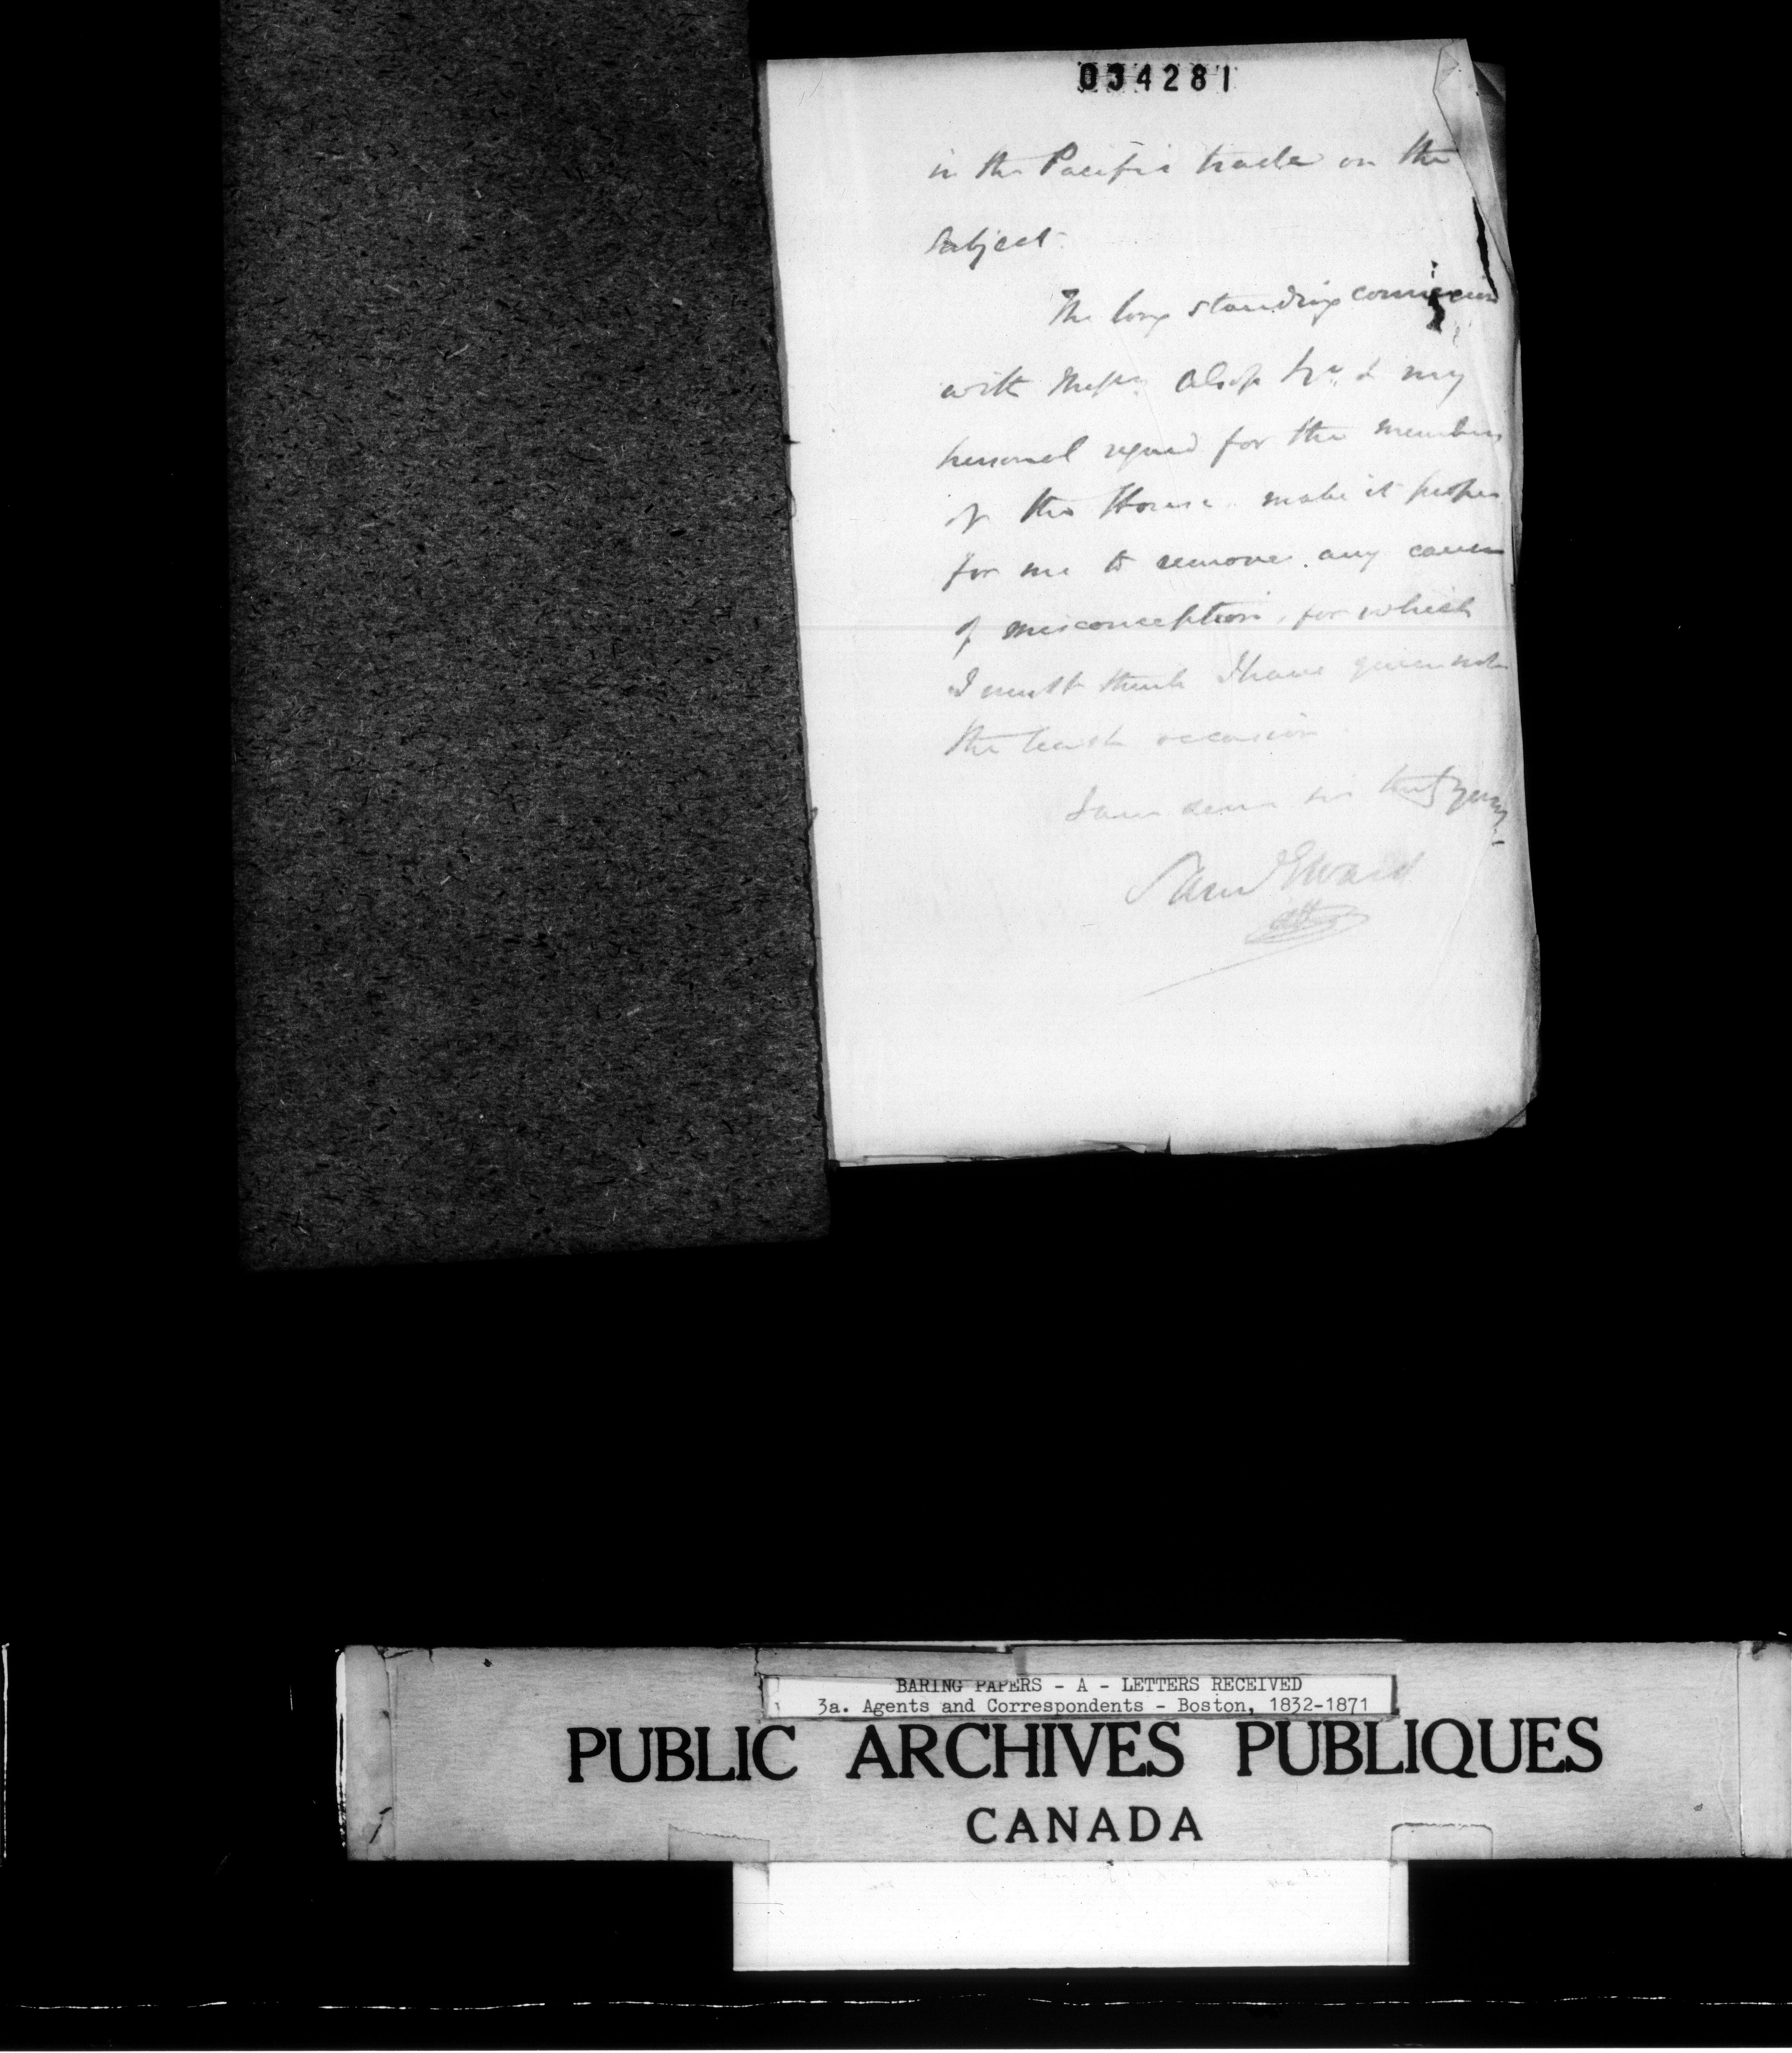 034281
in the Pacific trade on the
subject.
The long standing connexion
with Mess^rs. Alsop & my
personal regard for the members
of the House make it proper
for me to remove any cause
of misconception, for which
I must think I have given not
the least occasion
I am dear sir yours
BARING PAPERS - A - LETTERS RECEIVED
3a. Agents and Correspondents - Boston, 1832-1871
PUBLIC ARCHIVES PUBLIQUES
CANADA